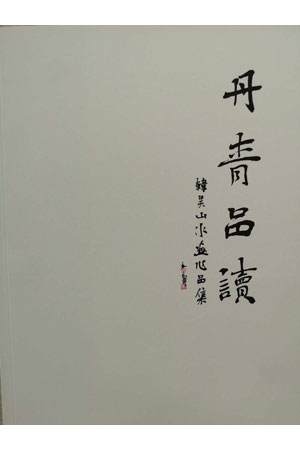 丹青品讀
韓昊山水畫作品集